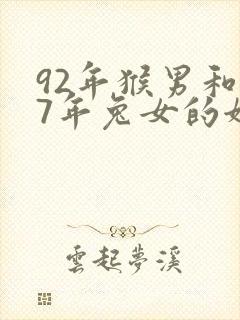 92年猴男和
7年兔女的
雲起夢溪